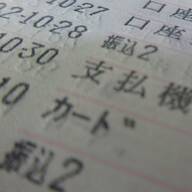 10-27 口座
2-10-28 口座
10-30 振込2
10 支払機
カード
振込2